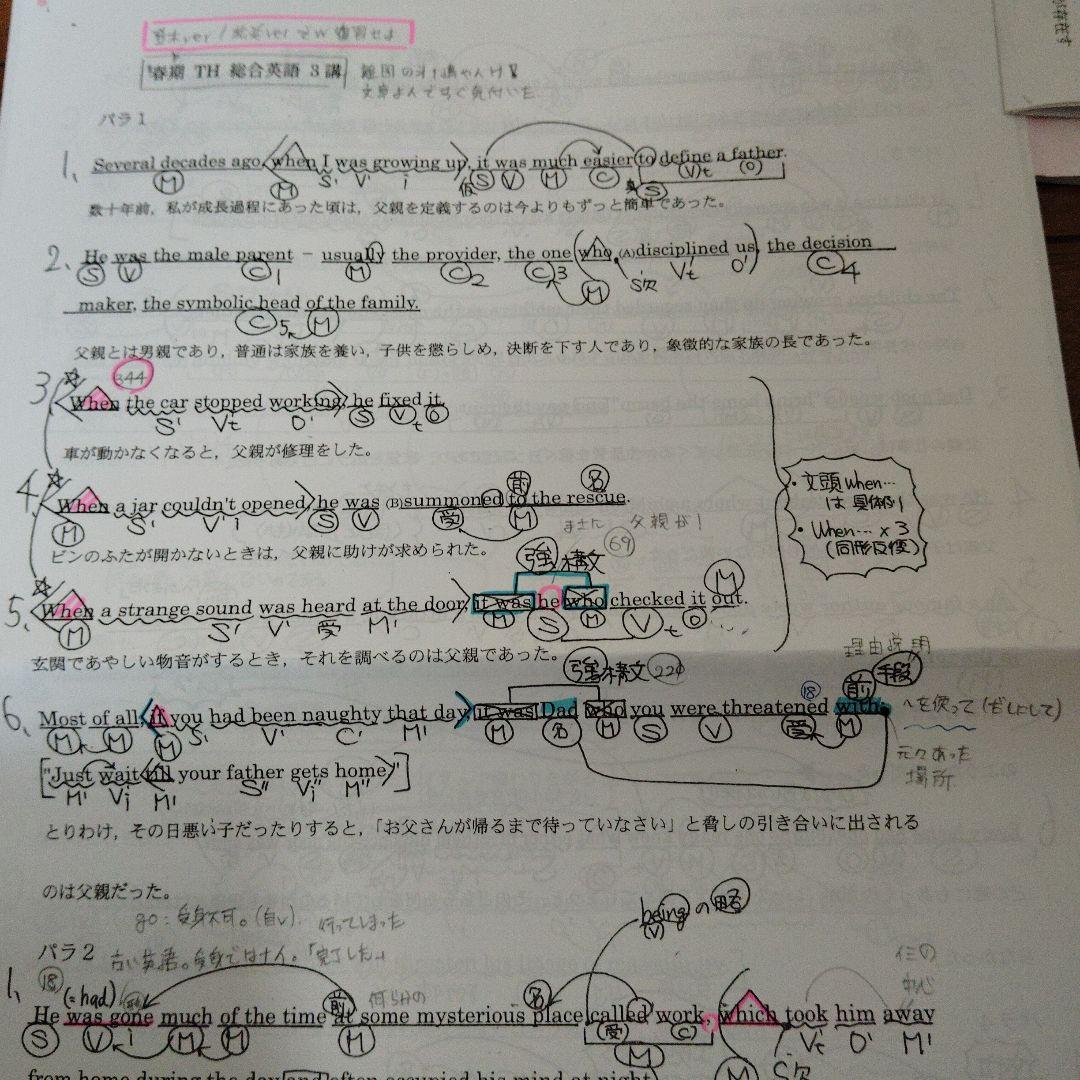 が存在す
春期 TH 総合英語 3 講
パラ 1
1, Several decades ago, when I was growing up, it was much easier to define a father.
M M S' V' i 仮 S V M C 真 S Vt O
数十年前，私が成長過程にあった頃は，父親を定義するのは今よりもずっと簡単であった。
2、 He was the male parent – usually the provider, the one who (A)disciplined us, the decision
S V C1 M C2 C3 M S'欠 Vt O' C4
maker, the symbolic head of the family.
C5 M
父親とは男親であり，普通は家族を養い，子供を懲らしめ，決断を下す人であり，象徴的な家族の長であった。
344
3、 When the car stopped working, he fixed it.
S' Vt O' S Vt O
車が動かなくなると，父親が修理をした。
前 名
4、 When a jar couldn't opened, he was (B)summoned to the rescue.
M S' V' i S V 受 M
父親が！
ビンのふたが開かないときは，父親に助けが求められた。
・文頭 When…
は 具体例
・When… × 3
(同形反復)
強構文 69
M
5、 When a strange sound was heard at the door, it was he who checked it out.
M S' V' 受 M' M S M Vt O
玄関であやしい物音がするとき，それを調べるのは父親であった。
強構文 220
理由説明
18 前 手段
6、 Most of all, if you had been naughty that day, it was Dad who you were threatened with:
M M M S' V' C' M' M 名 M S V 受 M
〜を使って(だしにして)
元々あった
場所
["Just wait till your father gets home"]
M' Vi M' S'' Vi'' M''
とりわけ，その日悪い子だったりすると，「お父さんが帰るまで待っていなさい」と脅しの引き合いに出される
のは父親だった。
go：受身不可。(自V)． 行ってしまった
being の 略
(V)
パラ 2
古い英語。受身ではナイ。「完了した」
18 (= had) 前 何らかの 名
1、 He was gone much of the time at some mysterious place called work, which took him away
S V i M M M 受 C M M S'欠 Vt O' M'
from home during the day and often occupied his mind at night.